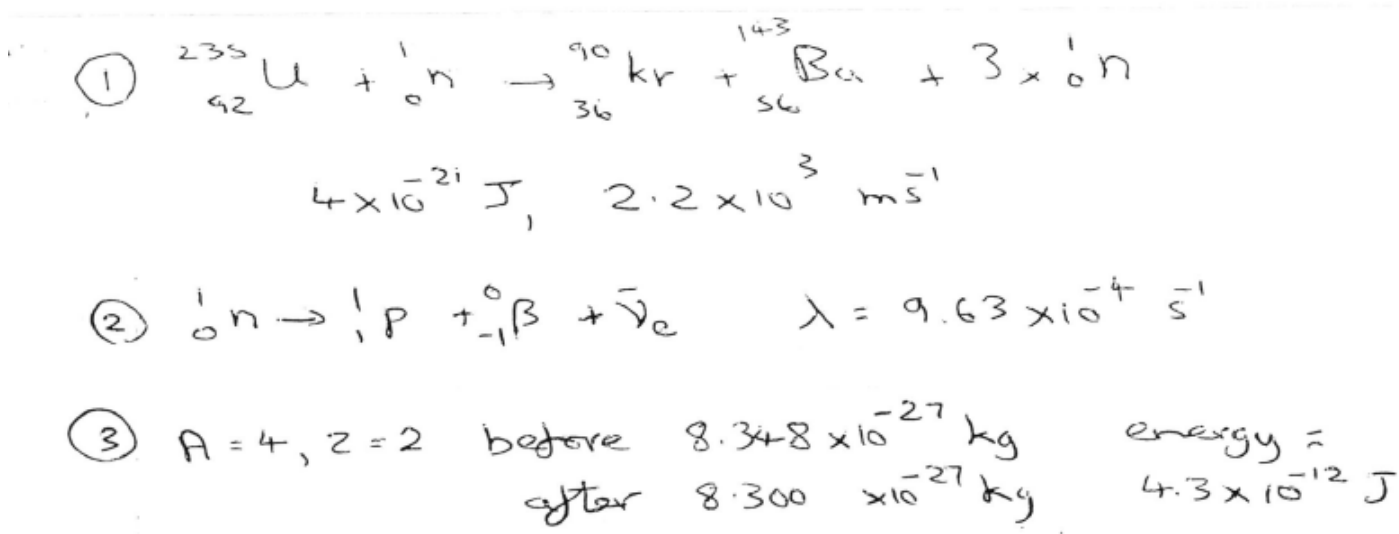 ① ²³⁵₉₂U + ¹₀n → ⁹⁰₃₆kr + ¹⁴³₅₆Ba + 3 × ¹₀n
4 × 10⁻²¹ J, 2.2 × 10³ ms⁻¹
② ¹₀n → ¹₁p + ⁰₋₁β + ν̄e λ = 9.63 × 10⁻⁴ s⁻¹
③ A = 4, Z = 2 before 8.348 × 10⁻²⁷ kg energy =
after 8.300 × 10⁻²⁷ kg 4.3 × 10⁻¹² J